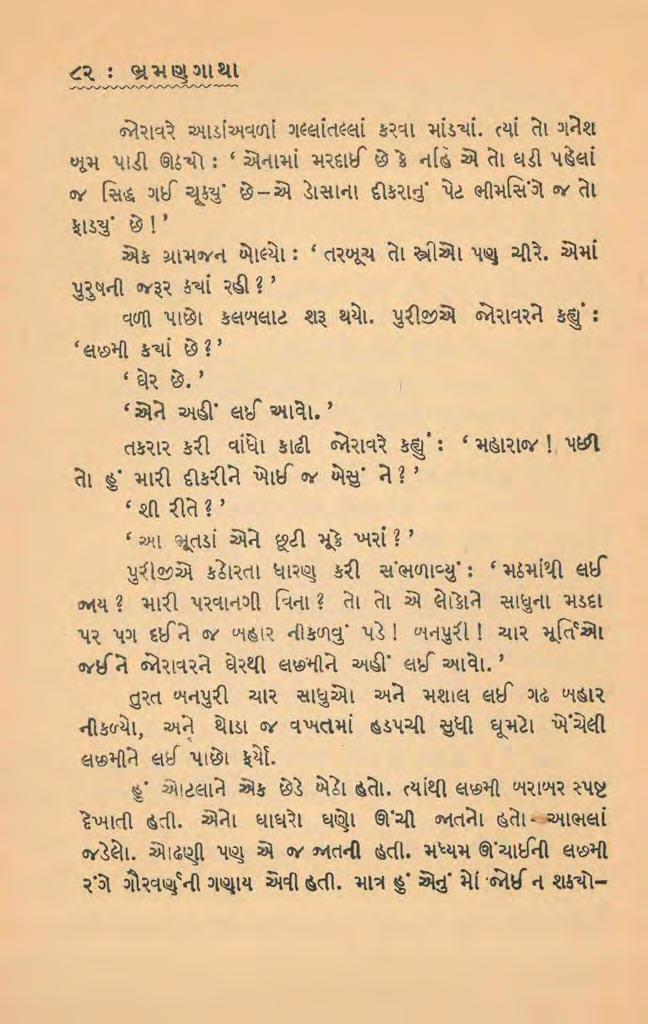 ૮૨ : ભ્રમણગાથા
જોરાવરે આડાંઅવળાં ગલ્લાંતલ્લાં કરવા માંડ્યાં. ત્યાં તો ગનેશ
બૂમ પાડી ઊઠ્યો : ‘ એનામાં મરદાઈ છે કે નહિ એ તો ઘડી પહેલાં
જ સિદ્ધ ગઈ ચૂક્યું છે–એ ડોસાના દીકરાનું પેટ ભીમસિંગે જ તો
ફાડ્યું છે ! ’
એક ગ્રામજન બોલ્યો : ‘ તરબૂચ તો સ્ત્રીઓ પણ ચીરે. એમાં
પુરુષની જરૂર ક્યાં રહી ? ’
વળી પાછો કલબલાટ શરૂ થયો. પુરીજીએ જોરાવરને કહ્યું :
‘ લછમી ક્યાં છે ? ’
‘ ઘેર છે. ’
‘ એને અહીં લઈ આવો. ’
તકરાર કરી વાંધો કાઢી જોરાવરે કહ્યું : ‘ મહારાજ ! પછી
તો હું મારી દીકરીને ખોઈ જ બેસું ને ? ’
‘ શી રીતે ? ’
‘ આ ભૂતડાં એને છૂટી મૂકે ખરાં ? ’
પુરીજીએ કઠોરતા ધારણ કરી સંભળાવ્યું : ‘ મઠમાંથી લઈ
જાય ? મારી પરવાનગી વિના ? તો તો એ લોકોને સાધુના મડદા
પર પગ દઈને જ બહાર નીકળવું પડે ! બનપુરી ! ચાર મૂર્તિઓ
જઈને જોરાવરને ઘેરથી લછમીને અહીં લઈ આવો. ’
તુરત બનપુરી ચાર સાધુઓ અને મશાલ લઈ ગઢ બહાર
નીકળ્યો, અને થોડા જ વખતમાં હડપચી સુધી ઘૂમટો ખેંચેલી
લછમીને લઈ પાછો ફર્યો.
હું ઓટલાને એક છેડે બેઠો હતો. ત્યાંથી લછમી બરાબર સ્પષ્ટ
દેખાતી હતી. એનો ઘાઘરો ઘણો ઊંચી જાતનો હતો–આભલાં
જડેલો. ઓઢણી પણ એ જ જાતની હતી. મધ્યમ ઊંચાઈની લછમી
રંગે ગૌરવર્ણની ગણાય એવી હતી. માત્ર હું એનું મોં જોઈ ન શક્યો–